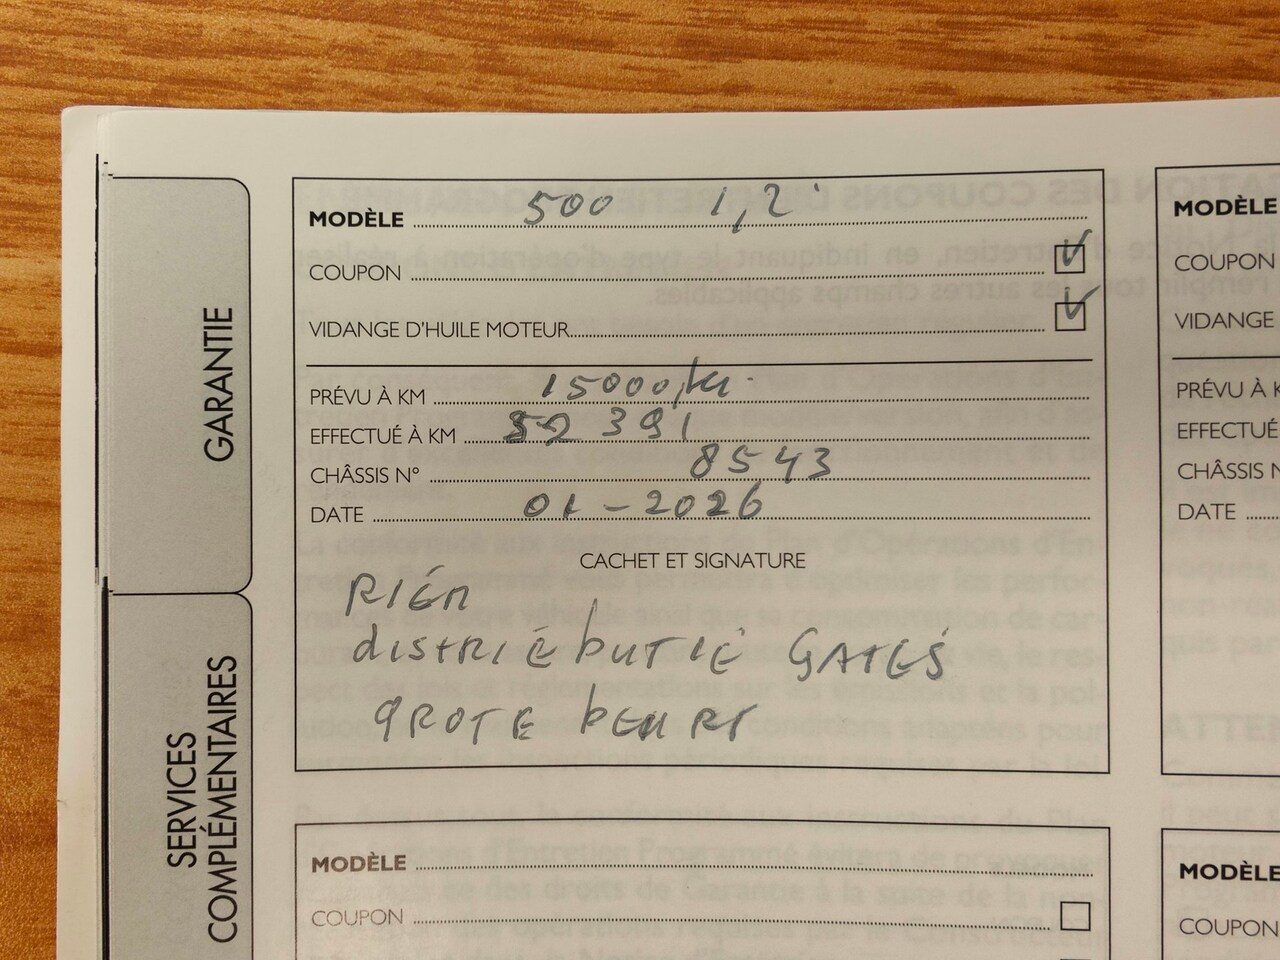 GARANTIE
SERVICES
COMPLÉMENTAIRES
MODÈLE 500 1,2
COUPON
VIDANGE D'HUILE MOTEUR
PRÉVU À KM 15000 km
EFFECTUÉ À KM 52 391
CHÂSSIS N° 8543
DATE 01-2026
CACHET ET SIGNATURE
RIÉM
dISTRIEbUTIE GATES
GROTE bEURT
MODÈLE
COUPON
MODÈLE
COUPON
VIDANGE
PRÉVU À K
EFFECTUÉ
CHÂSSIS N
DATE
MODÈLE
COUPON